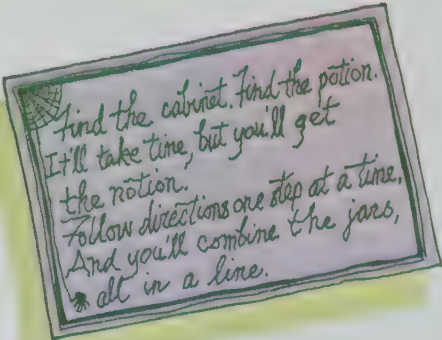 Find the cabinet. Find the potion.
It'll take time, but you'll get
the notion.
Follow directions one step at a time,
And you'll combine the jars,
all in a line.